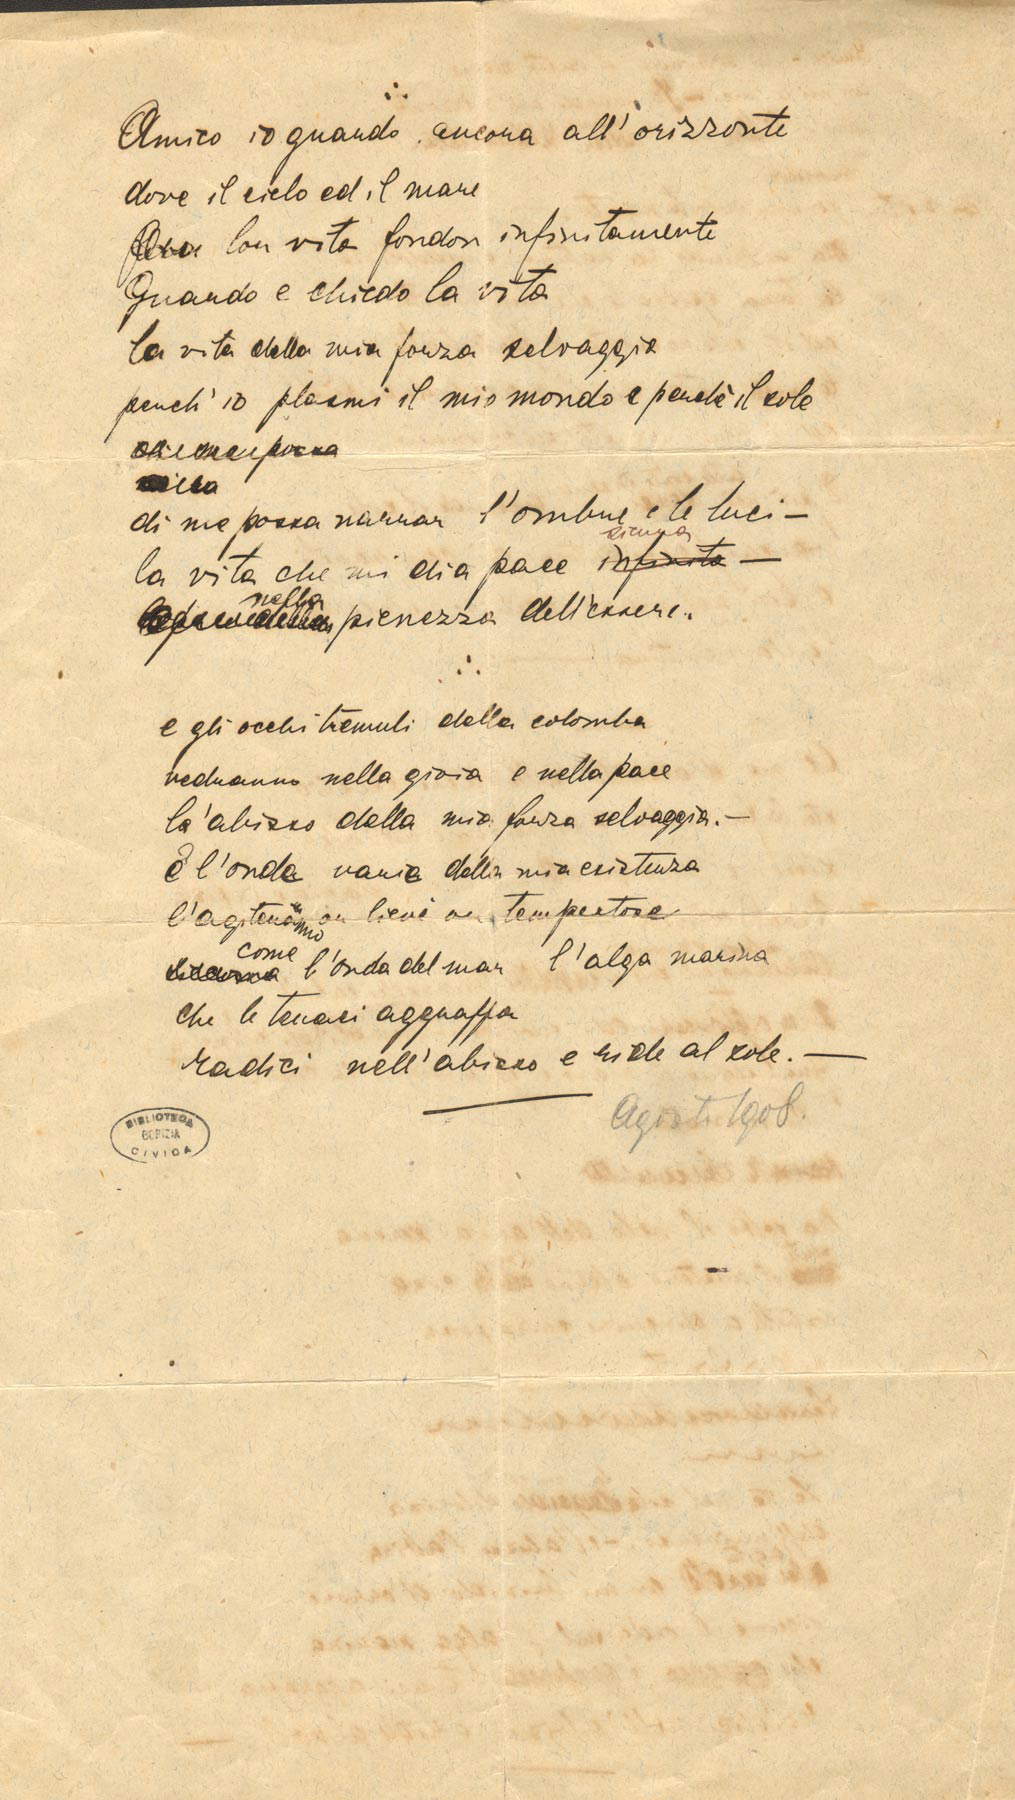 Amico io guardo ancora all'orizzonte
dove il cielo ed il mare
lor vita fondon infinitamente
Guardo e chiedo la vita
la vita della mia forza selvaggia
perch' io plasmi il mio mondo e perchè il sole
di me possa
di me possa narrar l'ombre e le luci—
sicura
la vita che mi dia pace infinita —
nella
della pienezza dell'essere.
e gli occhi tremuli della colomba
vedranno nella gioia e nella pace
l'abisso della mia forza selvaggia.—
E l'onda varia della mia esistenza
l'agiteranno or lieve or tempestose
come
l'onda del mar l'alga marina
che le tenaci aggraffa
radici nell'abisso e ride al sole.—
Agosto 1908.
BIBLIOTECA
GORIZIA
CIVICA